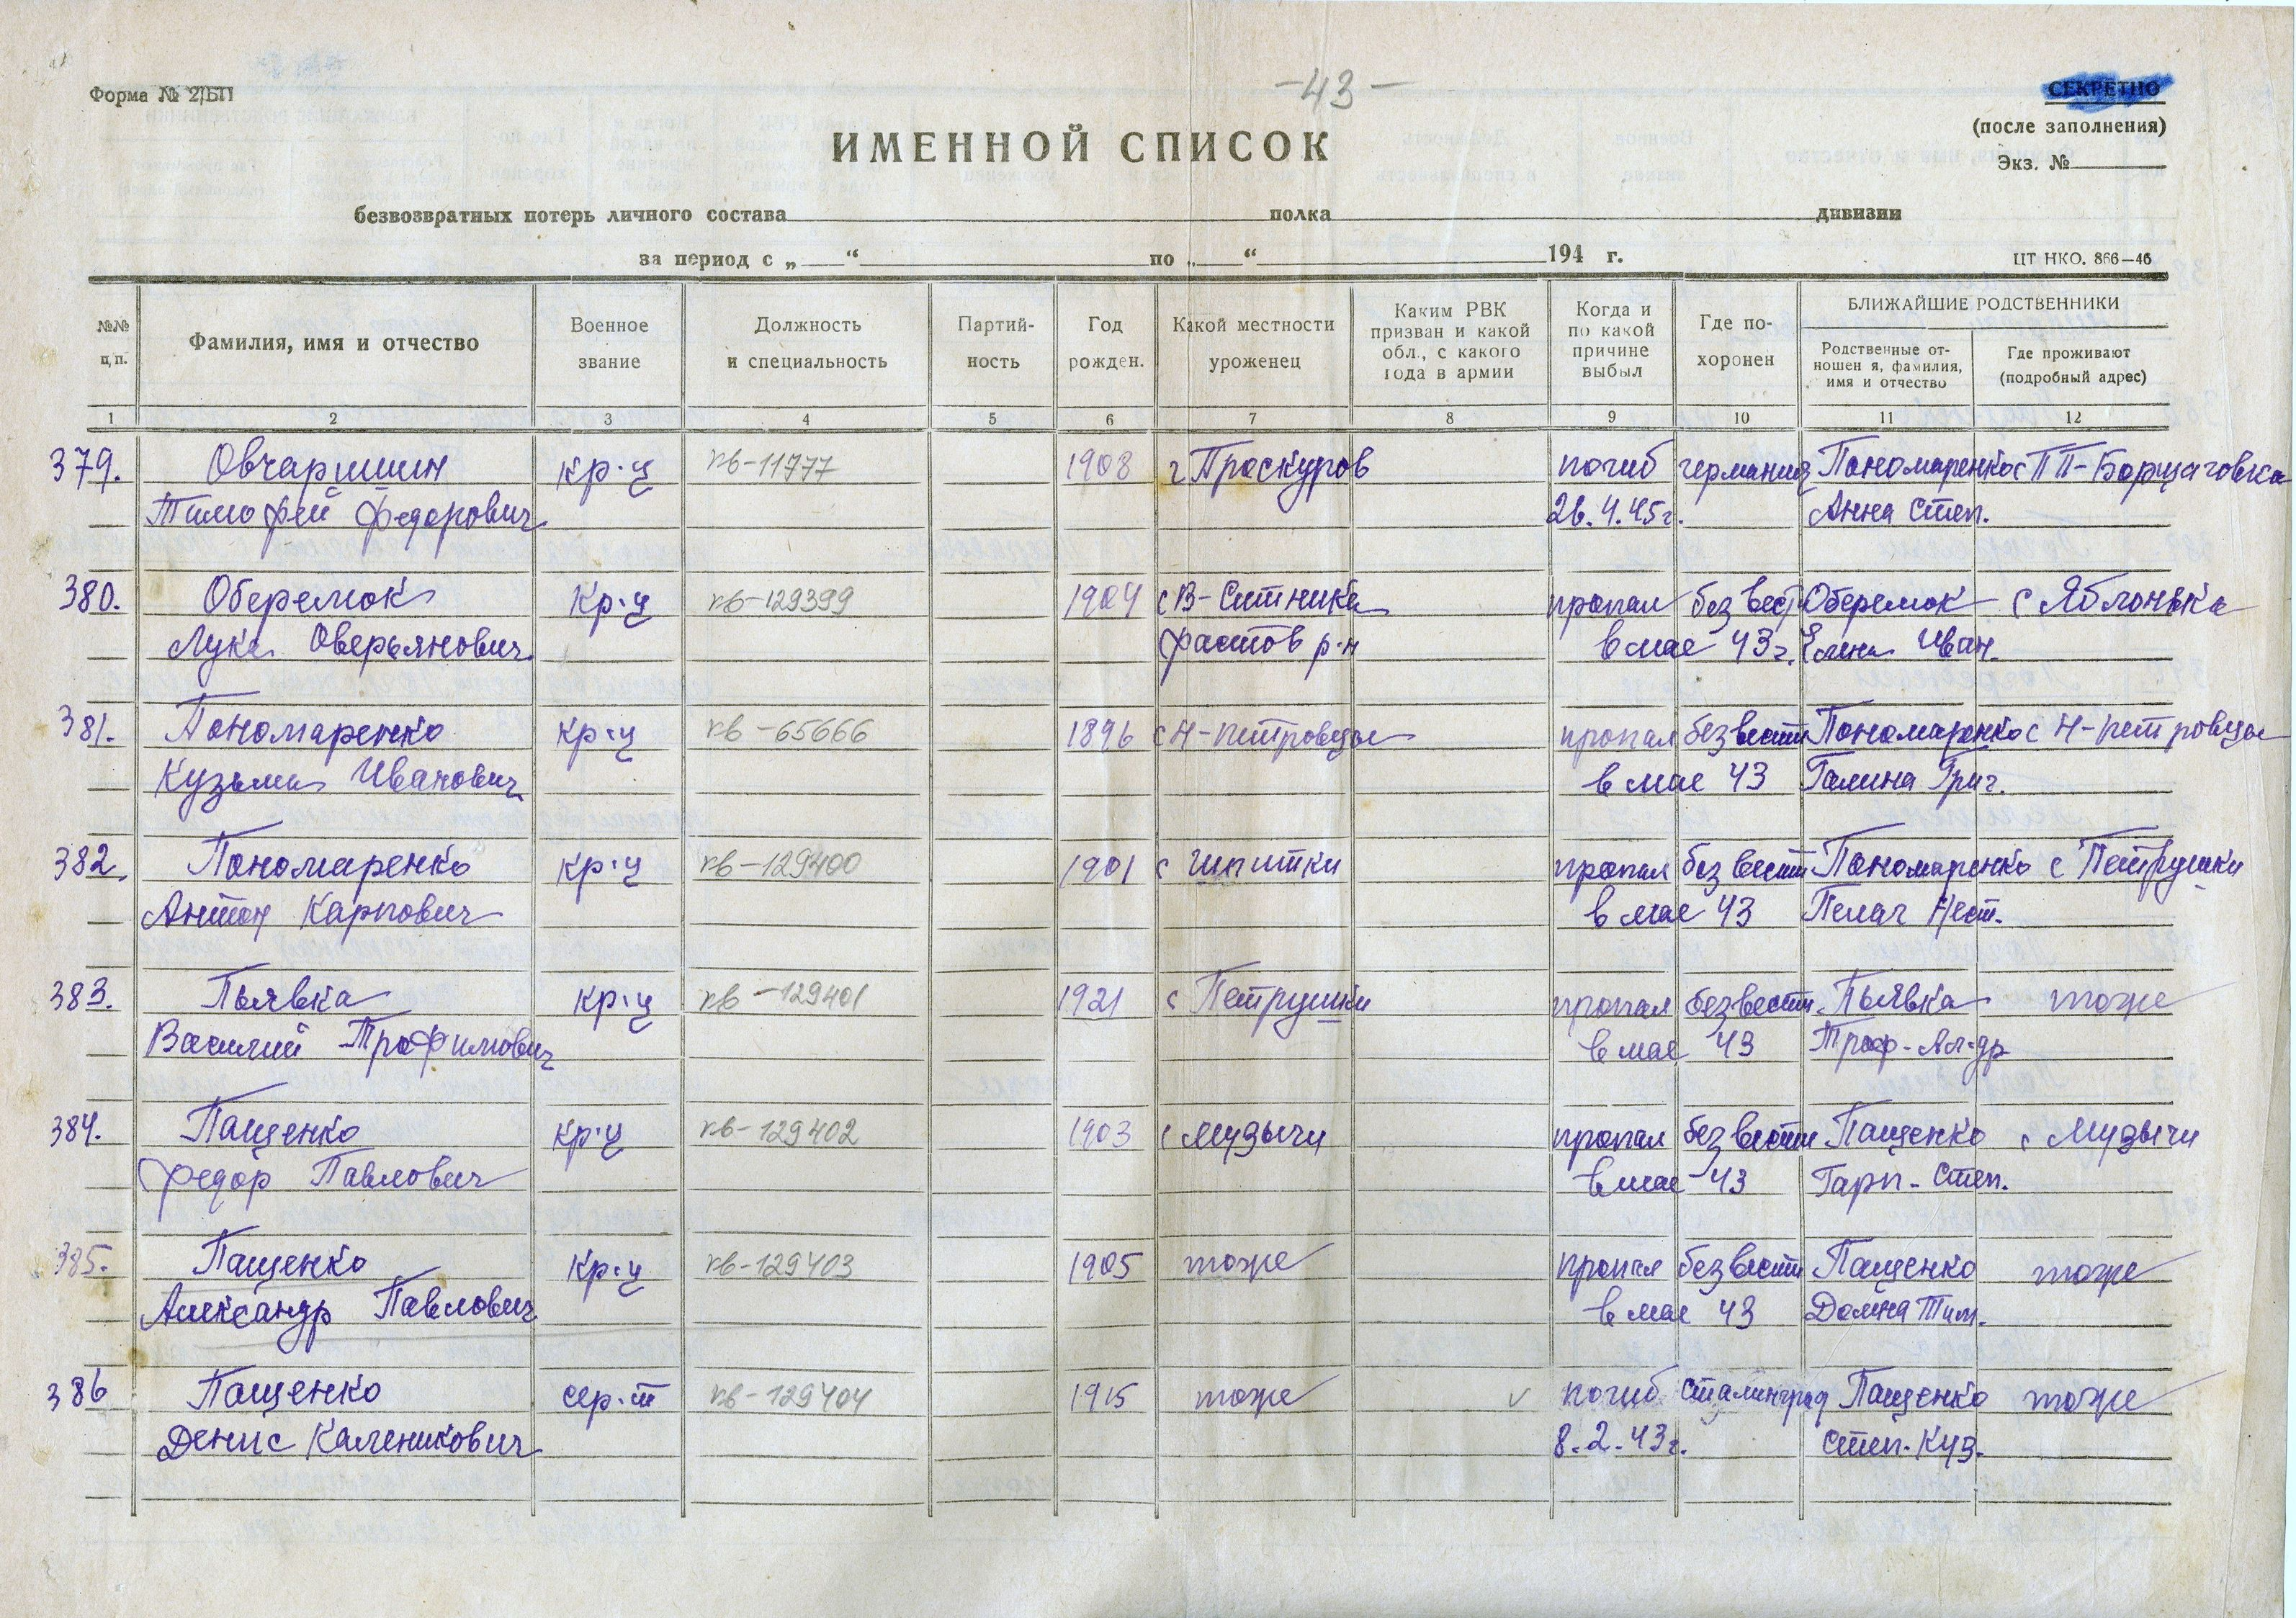 Форма № 2/БП
-43-
СЕКРЕТНО
(после заполнения)
Экз. №
ИМЕННОЙ СПИСОК
безвозвратных потерь личного состава полка дивизии
за период с „ “ по „ “ 194 г.
ЦТ НКО. 866—46
№№ п.п. Фамилия, имя и отчество Военное звание Должность и специальность Партий-ность Год рожден. Какой местности уроженец Каким РВК призван и какой обл., с какого года в армии Когда и по какой причине выбыл Где по-хоронен БЛИЖАЙШИЕ РОДСТВЕННИКИ
Родственные от-ношен я, фамилия, имя и отчество Где проживают (подробный адрес)
1 2 3 4 5 6 7 8 9 10 11 12
379. Овчаришин кр-ц кв-11777 1908 г Проскуров погиб германия Пономаренко с ПП-Борщаговка
Тимофей Федорович 26.4.45г. Анна Степ.
380. Оберемок кр-ц кв-129399 1904 с В-Снитинка пропал без вести Оберемок с Яблонька
Лука Оверьянович фастов р-н в мае 43г. Елена Иван.
381. Пономаренко кр-ц кв-65666 1896 с Н-Петровцы пропал без вести Пономаренко с Н-петровцы
Кузьма Иванович в мае 43 Галина Григ.
382. Пономаренко кр-ц кв-129400 1901 с Шпитки пропал без вести Пономаренко с Петрушки
Антон Карпович в мае 43 Пелаг Нест.
383. Пьявка кр-ц кв-129401 1921 с Петрушки пропал без вести Пьявка тоже
Василий Трофимович в мае 43 Троф-Ал-др
384. Пащенко кр-ц кв-129402 1903 с Музычи пропал без вести Пащенко с Музычи
Федор Павлович в мае 43 Гарп-Степ.
385. Пащенко кр-ц кв-129403 1905 тоже пропал без вести Пащенко тоже
Александр Павлович в мае 43 Домна Тим.
386 Пащенко сер-т кв-129404 1915 тоже погиб Сталинград Пащенко тоже
Денис Каленикович 8.2.43г. Степ. Куз.